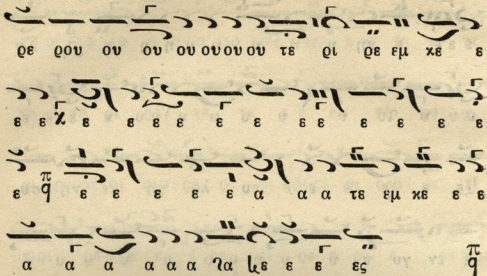 ρε ρου ου ου ου ου ου ου τε ρι ρε εμ κε ε
ε ε ε ε ε ε ε ε ε ε ε ε ε
ε ε ε ε ε ε α α α τε εμ κε ε ε
α α α α α α γα κε ε ε ες